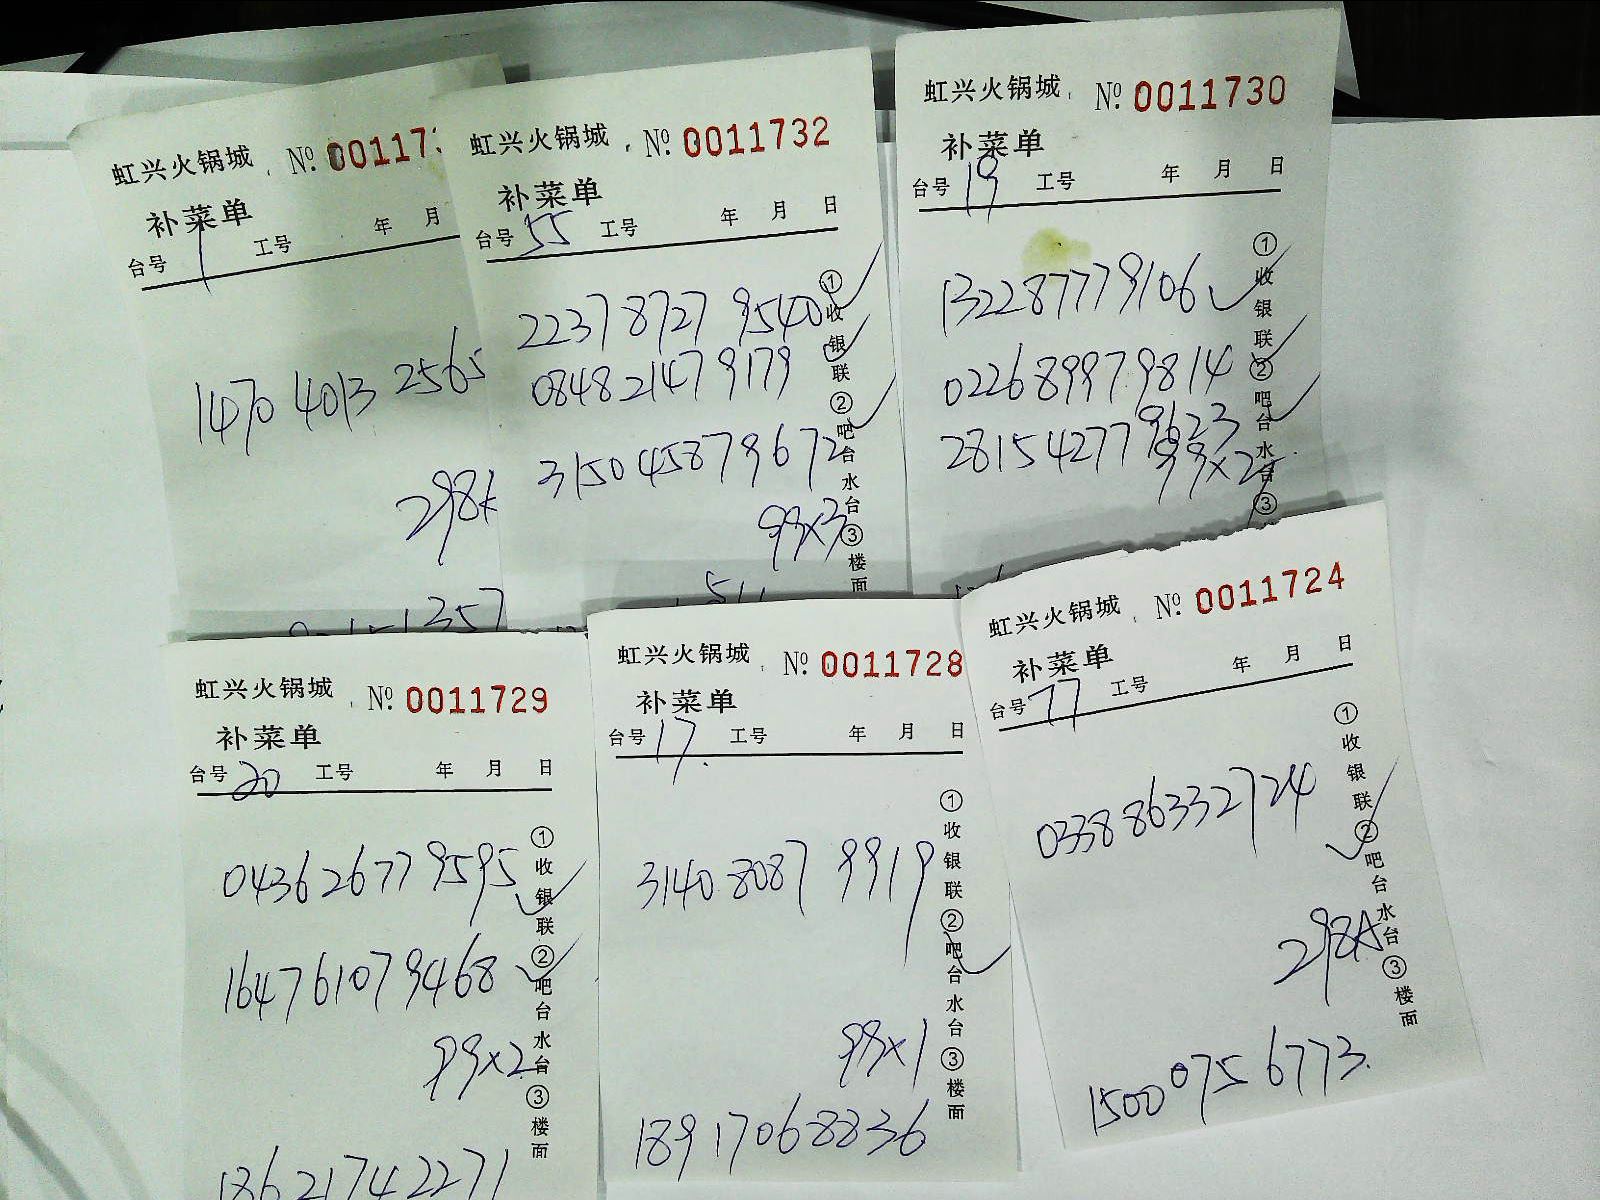 虹兴火锅城 № 001173
补菜单
台号 1 工号 年 月
1470 4013 2565
298
1357
虹兴火锅城 № 0011732
补菜单
台号 55 工号 年 月 日
2237 8727 9540
084821479179
3150 4587 9672
99x3
①收银联②吧台水台③楼面
虹兴火锅城 № 0011730
补菜单
台号 19 工号 年 月 日
132287779106
022689979814
281542779623
99x2
①收银联②吧台水台③
虹兴火锅城 № 0011729
补菜单
台号 20 工号 年 月 日
043626779595
164761079468
99x2
18621742271
①收银联②吧台水台③楼面
虹兴火锅城 № 0011728
补菜单
台号 17. 工号 年 月 日
3140 8087 9919
99x1
18917068836
①收银联②吧台水台③楼面
虹兴火锅城 № 0011724
补菜单
台号 77 工号 年 月 日
033886332724
298A
15000756773.
①收银联②吧台水台③楼面